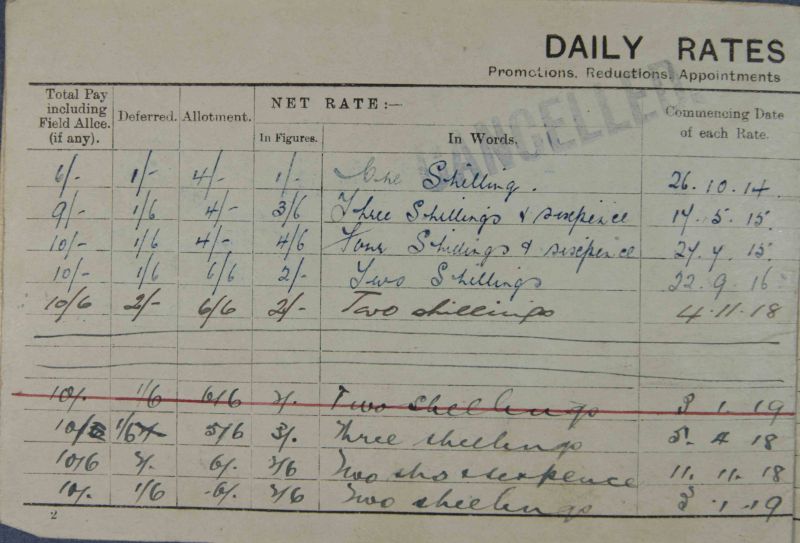 DAILY RATES
Promotions, Reductions, Appointments
CANCELLED.
Total Pay including Field Allce. (if any). Deferred. Allotment. NET RATE:— In Figures. In Words. Commencing Date of each Rate.
6/- 1/- 4/- 1/- One Shilling. 26.10.14
9/- 1/6 4/- 3/6 Three Shillings & sixpence 17.5.15
10/- 1/6 4/- 4/6 Four Shillings & sixpence 27.7.15
10/- 1/6 6/6 2/- Two Shillings 22.9.16
10/6 2/- 6/6 2/- Two shillings 4.11.18
10/- 1/6 6/6 2/- Two shillings 3 1.19
10/- 1/6 5/6 3/- Three shillings 5.4 18
10/6 2/- 6/- 2/6 Two sh & sixpence 11.11.18
10/- 1/6 6/- 2/6 Two shillings 3.1.19
2